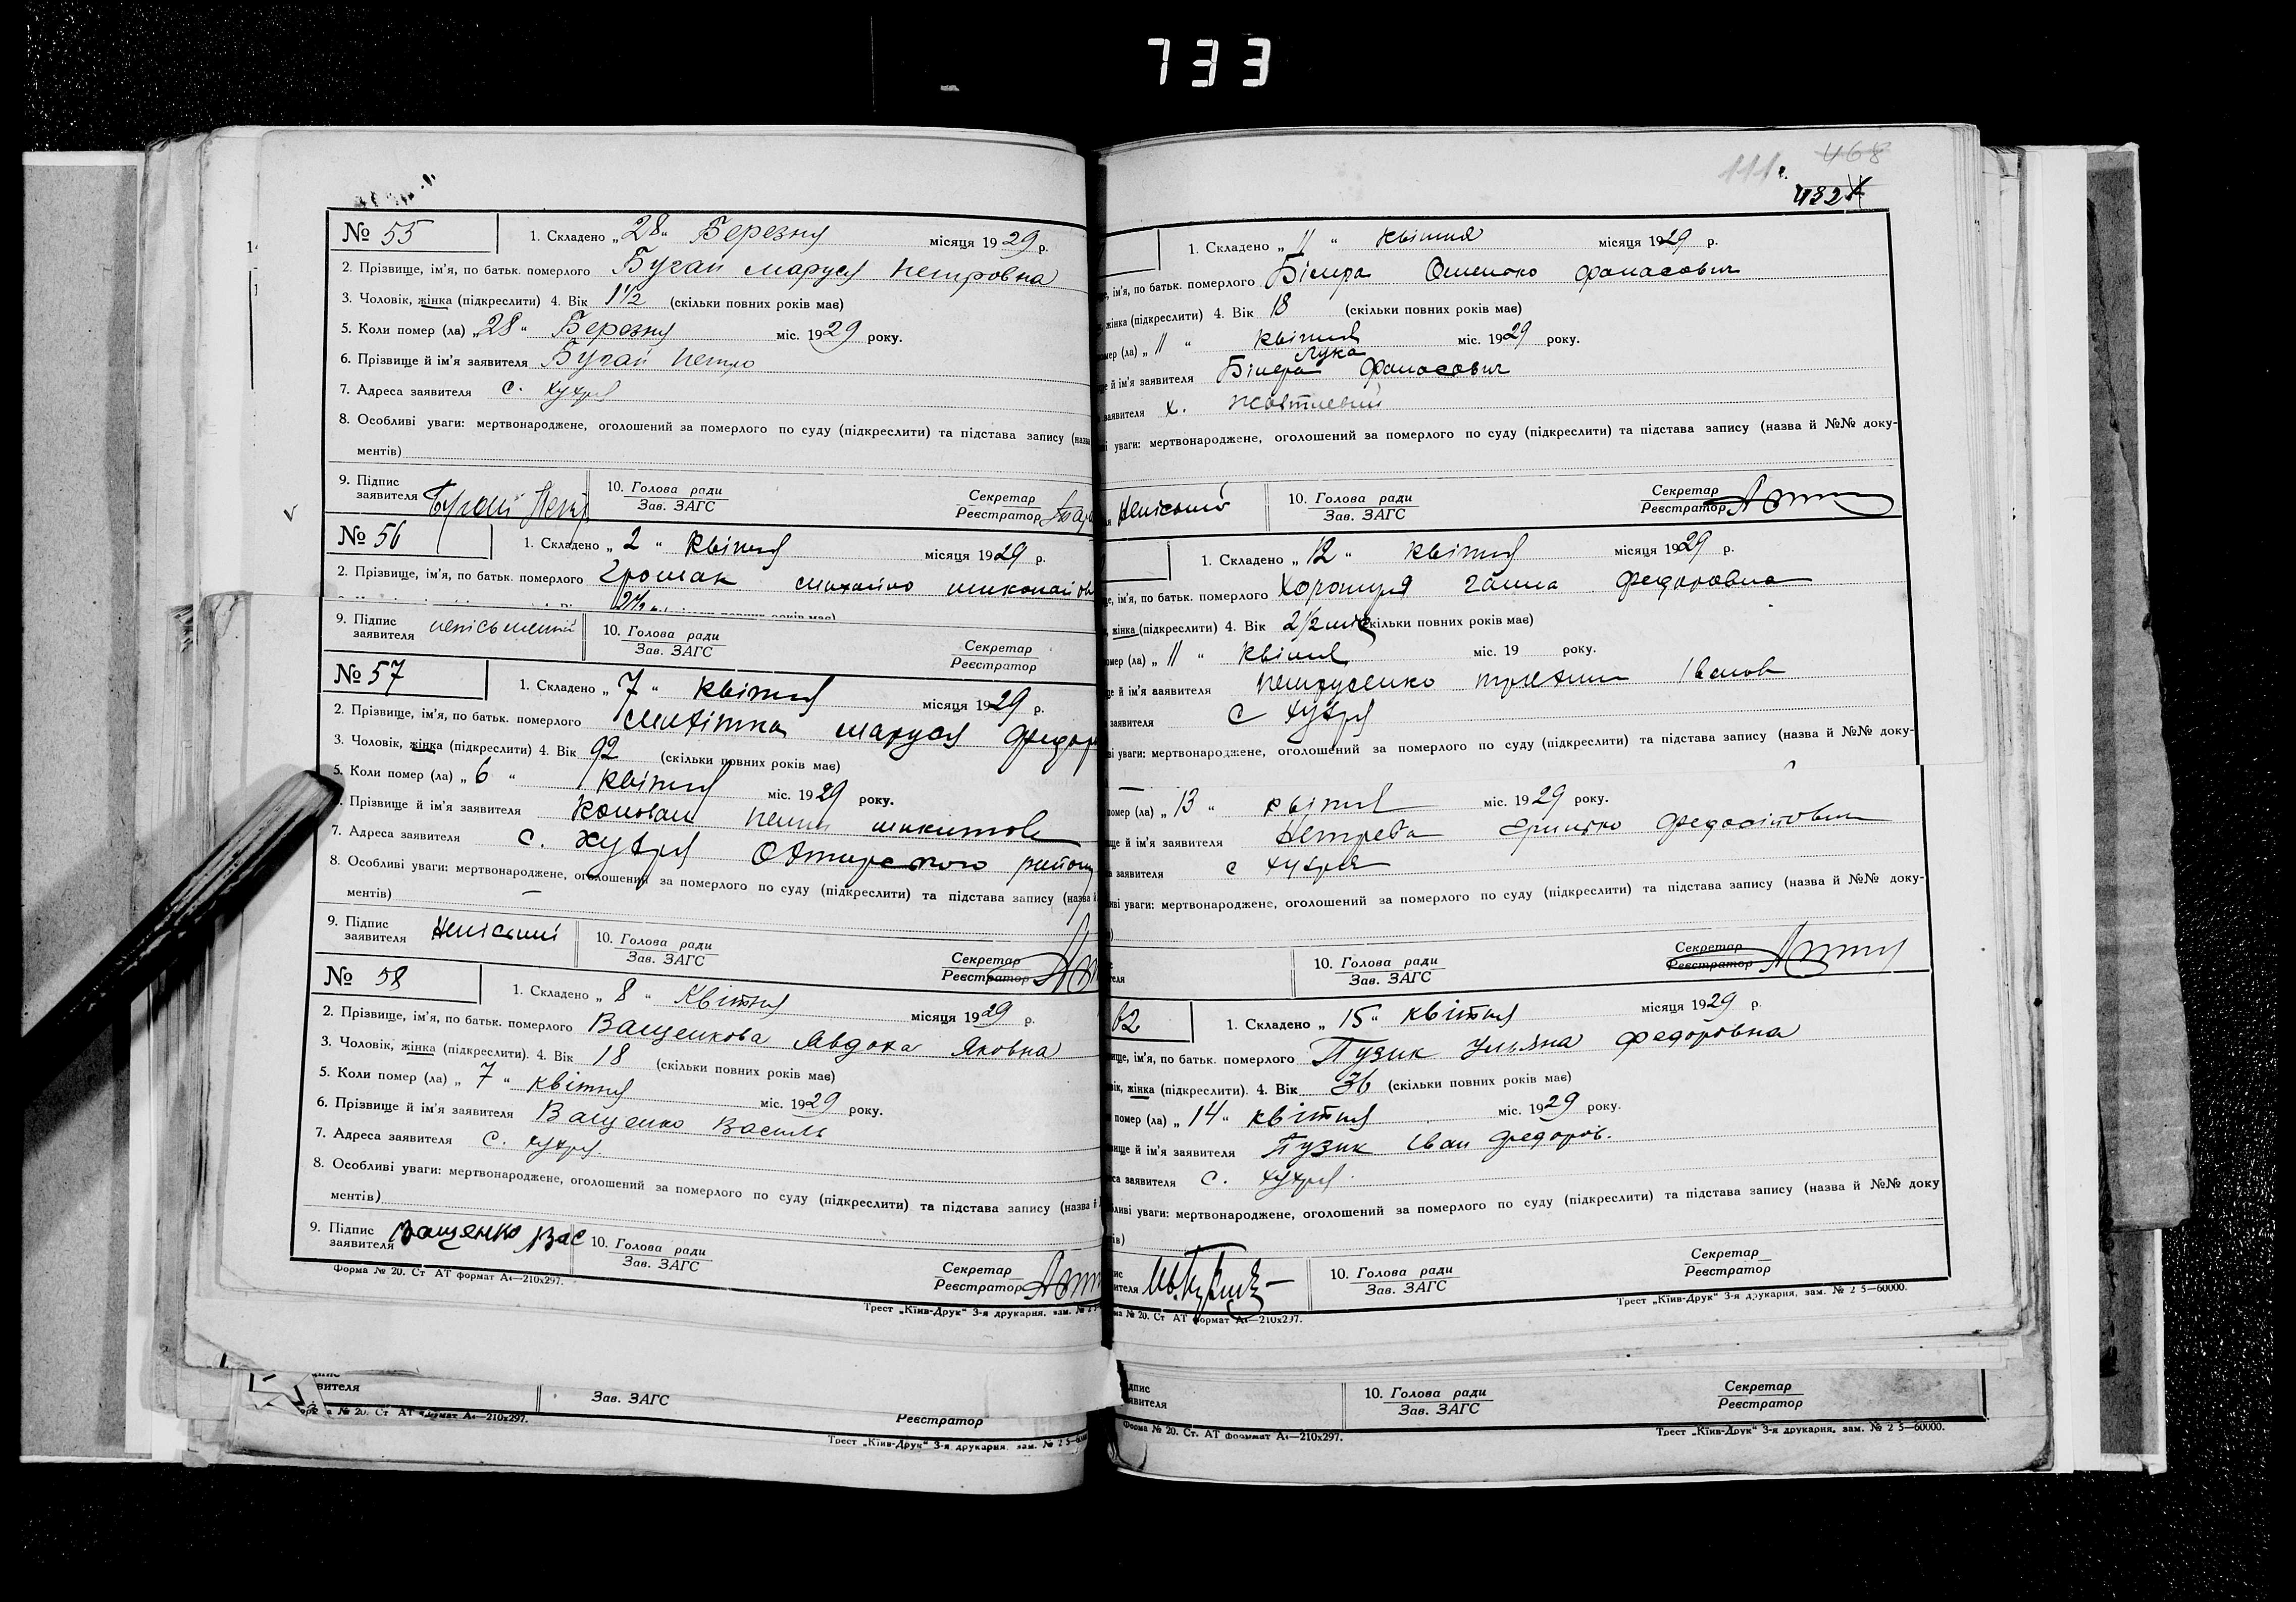 733
111.
468
432
№ 55
1. Складено „28“ Березня місяця 1929 р.
2. Прізвище, ім'я, по батьк. померлого Бугай Маруся Петровна
3. Чоловік, жінка (підкреслити) 4. Вік 1½ (скільки повних років має)
5. Коли помер (ла) „28“ Березня міс. 1929 року.
6. Прізвище й ім'я заявителя Бугай Петро
7. Адреса заявителя с. Хухря
8. Особливі уваги: мертвонароджене, оголошений за померлого по суду (підкреслити) та підстава запису (назва
ментів)
9. Підпис заявителя Бугай Пет
10. Голова ради Зав. ЗАГС
Секретар Реєстратор
№ 56
1. Складено „2“ Квітня місяця 1929 р.
2. Прізвище, ім'я, по батьк. померлого Грошак Михайло Миколайов
9. Підпис заявителя неписьменний
10. Голова ради Зав. ЗАГС
Секретар Реєстратор
№ 57
1. Складено „7“ Квітня місяця 1929 р.
2. Прізвище, ім'я, по батьк. померлого Маруся Федор
3. Чоловік, жінка (підкреслити) 4. Вік 92 (скільки повних років має)
5. Коли помер (ла) „6“ Квітня міс. 1929 року.
Прізвище й ім'я заявителя Коновал
7. Адреса заявителя с. Хухря Охтирського району
8. Особливі уваги: мертвонароджене, оголошений за померлого по суду (підкреслити) та підстава запису (назва й
ментів) —
9. Підпис заявителя Неписьмні
10. Голова ради Зав. ЗАГС
Секретар Реєстратор
№ 58
1. Складено „8“ Квітня місяця 1929 р.
2. Прізвище, ім'я, по батьк. померлого Ващенкова Явдоха Яковна
3. Чоловік, жінка (підкреслити). 4. Вік 18 (скільки повних років має)
5. Коли помер (ла) „7“ квітня міс. 1929 року.
6. Прізвище й ім'я заявителя Ващенко Василь
7. Адреса заявителя с. Хухря.
8. Особливі уваги: мертвонароджене, оголошений за померлого по суду (підкреслити) та підстава запису (назва й
ментів)
9. Підпис заявителя Ващенко Вас
10. Голова ради Зав. ЗАГС
Секретар Реєстратор
Форма № 20. Ст АТ формат А4—210х297.
Трест „Київ-Друк“ 3-я друкарня, зам. №
вителя
Зав. ЗАГС
Реєстратор
№ 20. Ст АТ формат А4—210х297.
Трест „Київ-Друк“ 3-я друкарня, зам. № 2 5—
1. Складено „11“ Квітня місяця 1929 р.
ім'я, по батьк. померлого Омелько Фанасович
жінка (підкреслити) 4. Вік 18 (скільки повних років має)
(ла) „11“ квітня міс. 1929 року.
Лука
й ім'я заявителя Фанасович
заявителя х.
уваги: мертвонароджене, оголошений за померлого по суду (підкреслити) та підстава запису (назва й №№ доку-
10. Голова ради Зав. ЗАГС
Секретар Реєстратор
1. Складено „12“ Квітня місяця 1929 р.
ім'я, по батьк. померлого Ганна Федоровна
жінка (підкреслити) 4. Вік 2½ скільки повних років має)
(ла) „11“ Квітня міс. 19 року.
й ім'я заявителя Іванов
заявителя с Хухря
уваги: мертвонароджене, оголошений за померлого по суду (підкреслити) та підстава запису (назва й №№ доку-
помер (ла) „13“ квітня міс. 1929 року.
й ім'я заявителя Нетреба Грицько Федосіпович
заявителя с Хухря
уваги: мертвонароджене, оголошений за померлого по суду (підкреслити) та підстава запису (назва й №№ доку-
10. Голова ради Зав. ЗАГС
Секретар Реєстратор
62
1. Складено „15“ квітня місяця 1929 р.
ім'я, по батьк. померлого Пузик Уляна Федоровна
жінка (підкреслити). 4. Вік 36 (скільки повних років має)
помер (ла) „14“ квітня міс. 1929 року.
й ім'я заявителя Пузик Іван Федоров.
заявителя с. Хухря.
уваги: мертвонароджене, оголошений за померлого по суду (підкреслити) та підстава запису (назва й №№ доку
10. Голова ради Зав. ЗАГС
Секретар Реєстратор
№ 20. Ст АТ формат А4—210х297.
Трест „Київ-Друк“ 3-я друкарня, зам. № 2 5—60000.
10. Голова ради Зав. ЗАГС
Секретар Реєстратор
Форма № 20. Ст. АТ формат А4—210х297.
Трест „Київ-Друк“ 3-я друкарня, зам. № 2 5—60000.